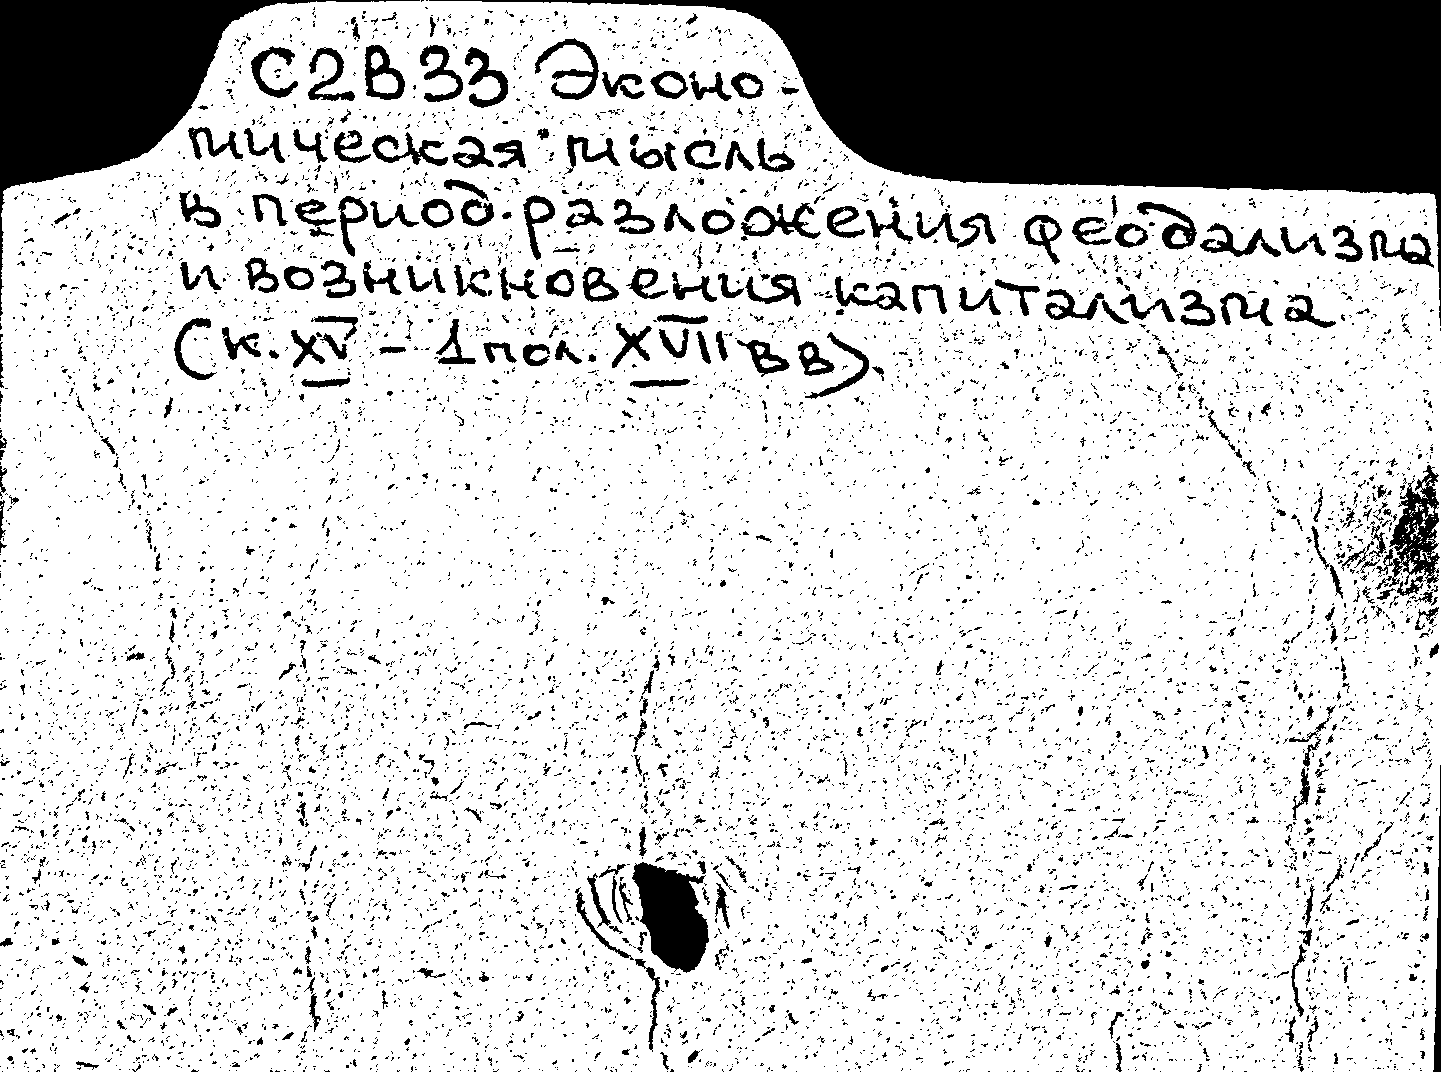 С2В33 Эконо-
мическая мысль
в период разложения феодализма
и возникновения капитализма
(к. XV - 1 пол. XVII вв).